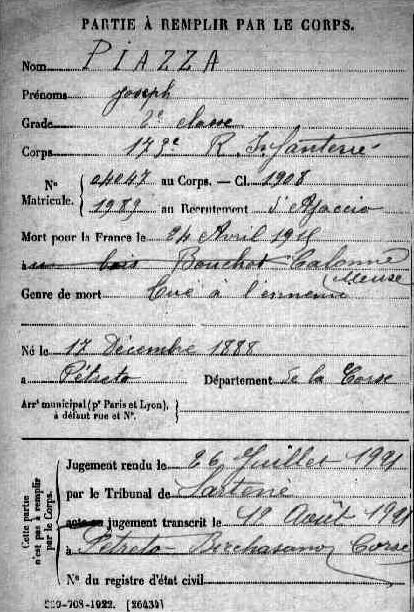 PARTIE À REMPLIR PAR LE CORPS.
Nom PIAZZA
Prénoms Joseph
Grade 2e classe
Corps 173e R. Infanterie
Nº Matricule. 04047 au Corps. — Cl. 1908
1989 au Recrutement d'Ajaccio
Mort pour la France le 24 Avril 1915
à au bois Bouchot Calonne
(Meuse)
Genre de mort Tué à l'ennemi
Né le 17 Décembre 1888
à Pétreto Département de la Corse
Arrt municipal (pr Paris et Lyon),
à défaut rue et Nº.
Cette partie n'est pas à remplir par le Corps.
Jugement rendu le 26 Juillet 1921
par le Tribunal de Sartène
acte ou jugement transcrit le 12 Août 1921
à Pétreto-Bicchisano Corse
Nº du registre d'état civil
708-1922. [26434]